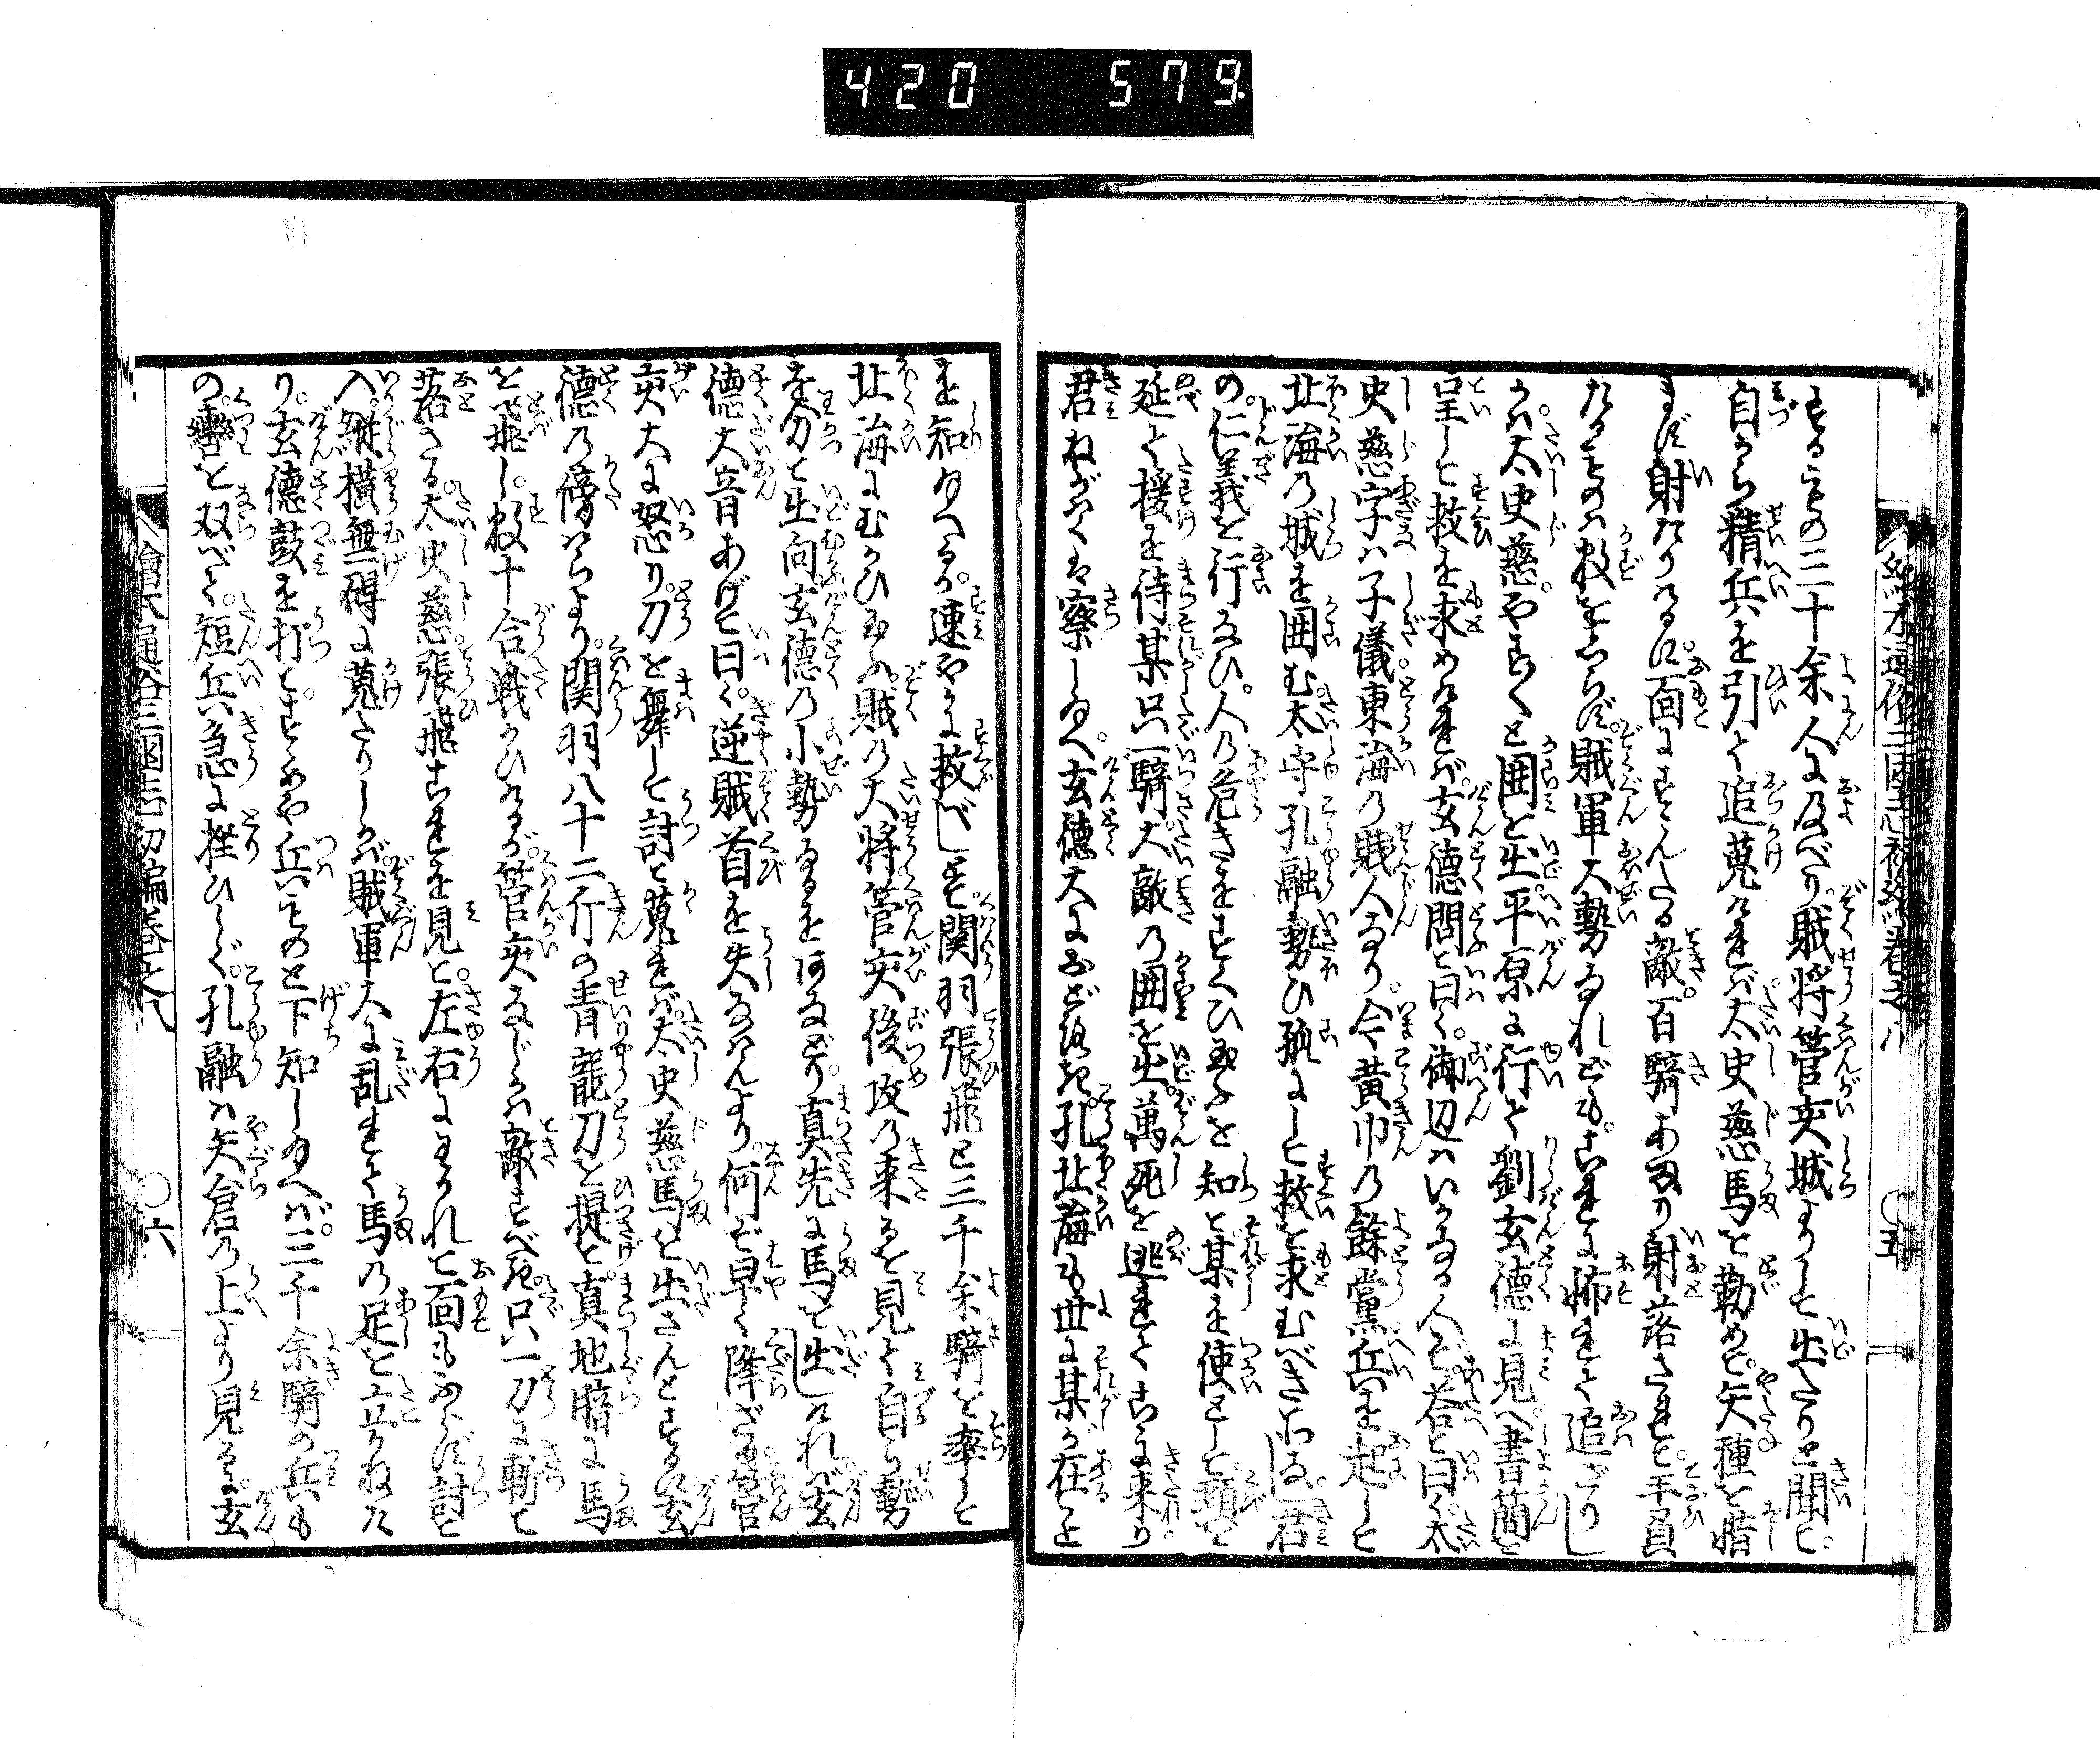 420 579
繪本通俗三國志初編巻之八 〇五
するもの三十余人に及べり賊将管亥城より出たりと聞て
自から精兵を引て追蒐ければ太史慈馬を勒めて矢種を惜
まず射たりけるに面にすゝんたる敵百騎あまり射落されて手負
たるもの数をしらず賊軍大勢なれどもこれに怖れて追ざりし
かバ太史慈やすく囲を出平原に行て劉玄徳に見へ書簡を
呈して救を求めければ玄徳問て曰く御辺ハいかなる人ぞ答て曰く太
史慈字ハ子儀東海の賎人なり今黄巾の餘黨兵を起して
北海の城を囲む太守孔融勢ひ孤にして救を求むべき所なし君
の仁義を行なひ人の危きをすくひ玉ふを知て某を使として頸を
延て援を待某只一騎大敵の囲を出萬死を逃れてこゝに来り
君ねがハくは察し玉へ玄徳大におどろき孔北海も世に某が在こと
を知玉へるか速やかに救べしとて関羽張飛と三千余騎を率して
北海にむかひ玉ふ賊の大将管亥後攻の来るを見て自ら勢
を分て出向玄徳の小勢なるを何なさり真先に馬を出しければ玄
徳大音あげて曰く逆賊首を失なハんより何ぞ早く降ざる管
亥大に怒り刀を舞して討て蒐れば太史慈馬を出さんとするに玄
徳の傍はらより関羽八十二斤の青龍刀を提て真地暗に馬
を飛し数十合戦かひけるが管亥なじかハ敵すべき只一刀に斬て
落さる太史慈張飛これを見て左右にわかれて面もふらず討て
入縦横無碍に蒐たりしかば賊軍大に乱れて馬の足を立かねた
り玄徳鼓を打てすゝめや兵ものと下知し玉へば三千余騎の兵も
の轡を双べて短兵急に挫ひしぐ孔融ハ矢倉の上より見るに玄
繪本通俗三國志初編巻之八 〇六